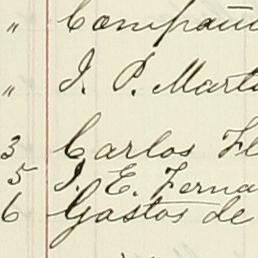 " Compañí
" J. P. Mart
3 Carlos Fl
5 J. E. Ferna
6 Gastos de